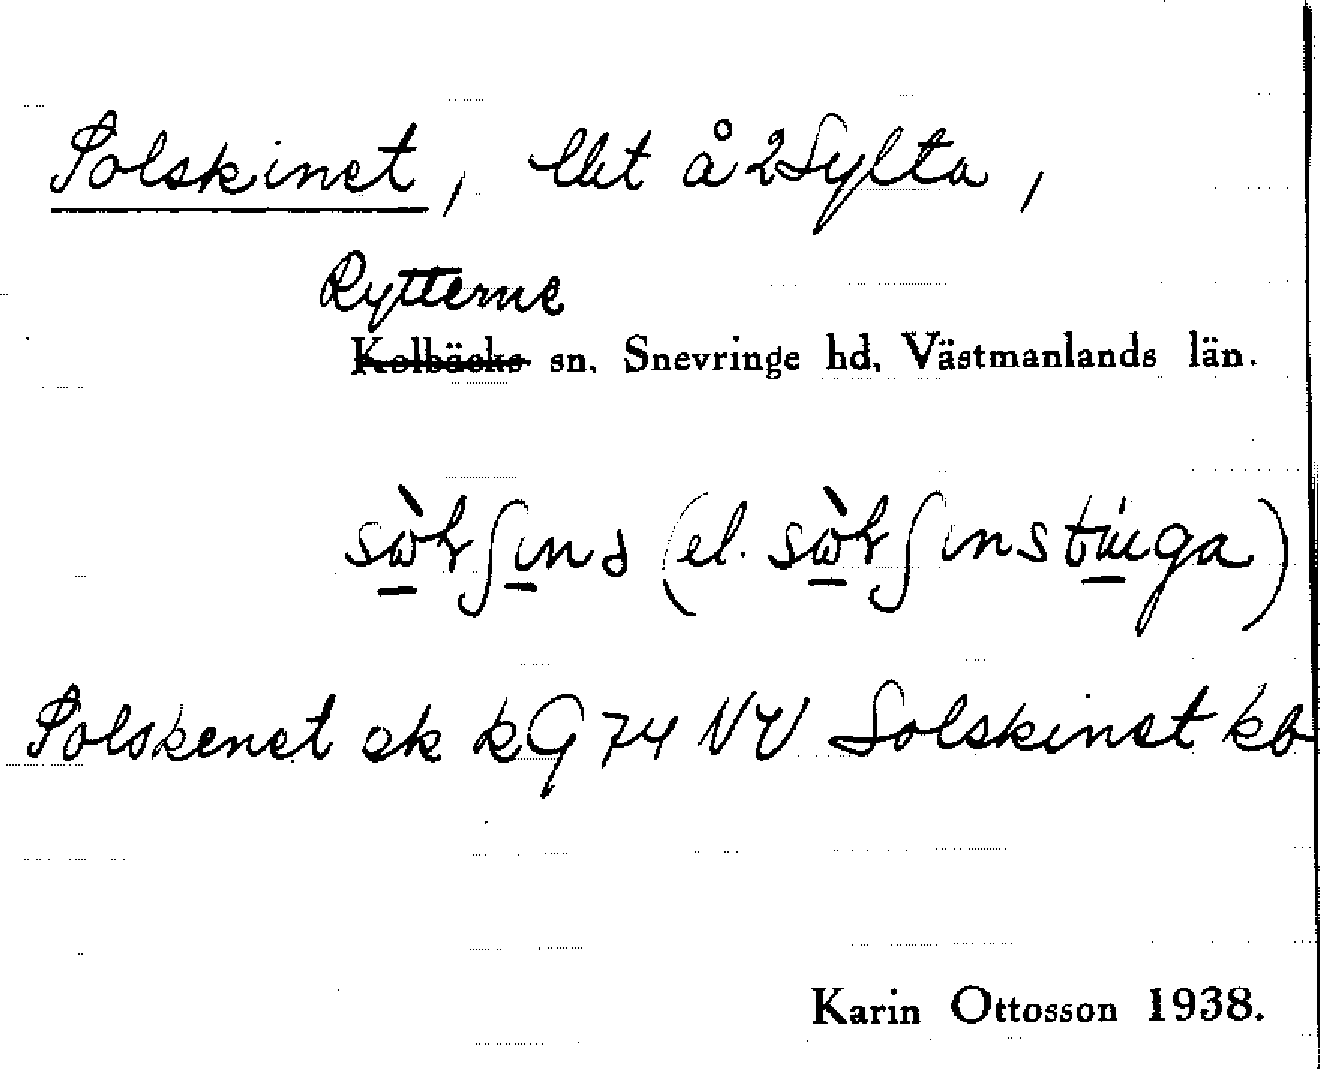 Solskinet, lht å 2 Sylta,
Rytterne
Kolbäcks sn. Snevringe hd, Västmanlands län.
sὼɫʃɩnə (el. sὼɫʃɩnstúga)
Solskenet ek kG 74 NV Solskinet kb
Karin Ottosson 1938.